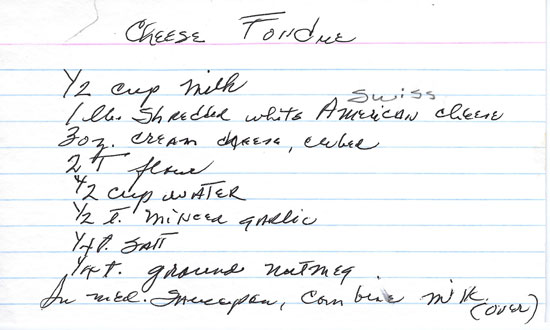 Cheese Fondue
1/2 cup milk
Swiss
1 lb. Shredded white American cheese
3oz. cream cheese, cubed
2 T flour
1/2 cup water
1/2 t. minced garlic
1/4 t. salt
1/4 t. ground nutmeg
In med. Saucepan, combine milk.
(over)